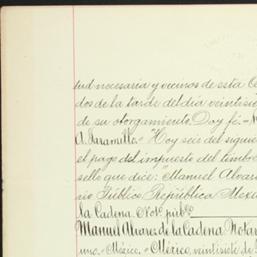 tud necesaria y vecinos de esta Ca
dos de la tarde del dia veintisi
de su otorgamiento. Doy fé.=
A. Jaramillo.= Hoy seis del siguien
el pago del impuesto del timbre
sello que dice: Manuel Alvar
rio Público República Mexi
la Cadena. Noto. pubco.
Manuel Alvarez de la Cadena Notar
uno.= México.= México, veintisiete de